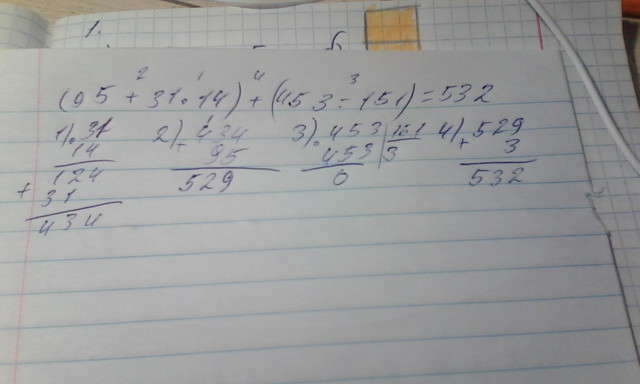 1.
2 1 4 3
(95 + 31 · 14) + (453 : 151) = 532
1) · 31 2) + 434 3) - 453 | 151 4) + 529
14 95 453 3 3
124 529 0 532
+ 31
434